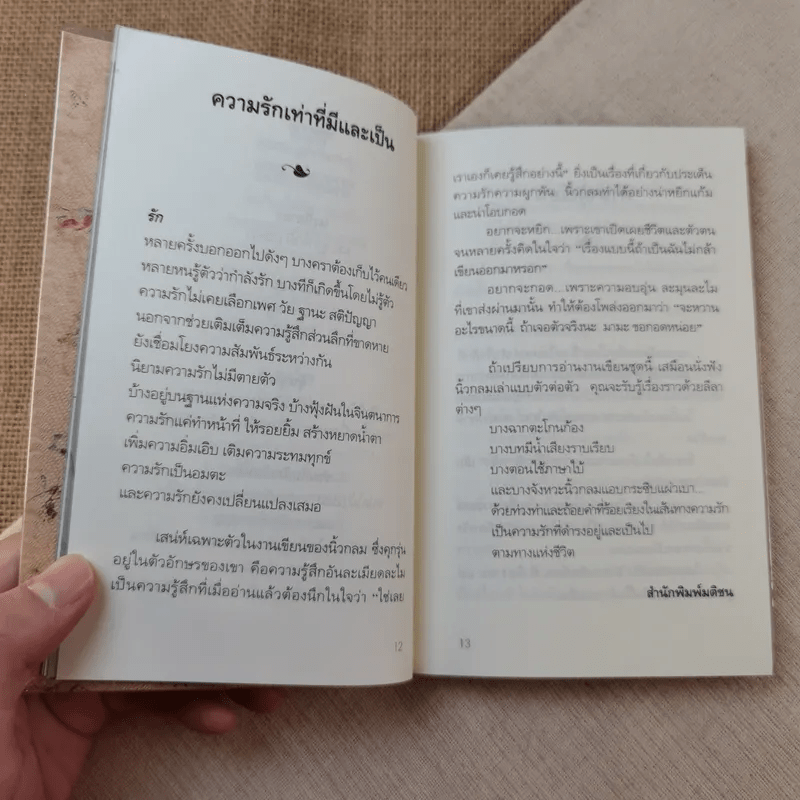 ความรักเท่าที่มีและเป็น
รัก
หลายครั้งบอกออกไปดังๆ บางคราต้องเก็บไว้คนเดียว
หลายหนรู้ตัวว่ากำลังรัก บางทีก็เกิดขึ้นโดยไม่รู้ตัว
ความรักไม่เคยเลือกเพศ วัย ฐานะ สติปัญญา
นอกจากช่วยเติมเต็มความรู้สึกส่วนลึกที่ขาดหาย
ยังเชื่อมโยงความสัมพันธ์ระหว่างกัน
นิยามความรักไม่มีตายตัว
บ้างอยู่บนฐานแห่งความจริง บ้างฟุ้งฝันในจินตนาการ
ความรักแค่ทำหน้าที่ ให้รอยยิ้ม สร้างหยาดน้ำตา
เพิ่มความอิ่มเอิบ เติมความระทมทุกข์
ความรักเป็นอมตะ
และความรักยังคงเปลี่ยนแปลงเสมอ
เสน่ห์เฉพาะตัวในงานเขียนของนิ้วกลม ซึ่งคุกรุ่น
อยู่ในตัวอักษรของเขา คือความรู้สึกอันละเมียดละไม
เป็นความรู้สึกที่เมื่ออ่านแล้วต้องนึกในใจว่า "ใช่เลย
12
เราเองก็เคยรู้สึกอย่างนี้" ยิ่งเป็นเรื่องที่เกี่ยวกับประเด็น
ความรักความผูกพัน นิ้วกลมทำได้อย่างน่าหยิกแก้ม
และน่าโอบกอด
อยากจะหยิก...เพราะเขาเปิดเผยชีวิตและตัวตน
จนหลายครั้งคิดในใจว่า "เรื่องแบบนี้ถ้าเป็นฉันไม่กล้า
เขียนออกมาหรอก"
อยากจะกอด...เพราะความอบอุ่น ละมุนละไม
ที่เขาส่งผ่านมานั้น ทำให้ต้องโพล่งออกมาว่า "จะหวาน
อะไรขนาดนี้ ถ้าเจอตัวจริงนะ มามะ ขอกอดหน่อย"
ถ้าเปรียบการอ่านงานเขียนชุดนี้ เสมือนนั่งฟัง
นิ้วกลมเล่าแบบตัวต่อตัว คุณจะรับรู้เรื่องราวด้วยลีลา
ต่างๆ
บางฉากตะโกนก้อง
บางบทมีน้ำเสียงราบเรียบ
บางตอนใช้ภาษาใบ้
และบางจังหวะนิ้วกลมแอบกระซิบแผ่วเบา...
ด้วยท่วงทำและถ้อยคำที่ร้อยเรียงในเส้นทางความรัก
เป็นความรักที่ดำรงอยู่และเป็นไป
ตามทางแห่งชีวิต
สำนักพิมพ์มติชน
13